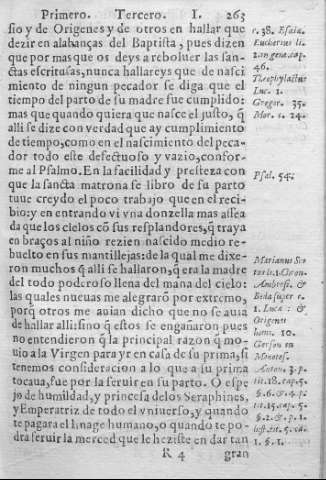 Primero. Tercero. I. 263
sio y de Origenes y de otros en hallar que
dezir en alabanças del Baptista, pues dizen
que por mas que os deys a reboluer las san-
ctas escrituras, nunca hallareys que de nasci
miento de ningun pecador se diga que el
tiempo del parto de su madre fue cumplido:
mas que quando quiera que nasce el justo, q̃
alli se dize con verdad que ay cumplimiento
de tiempo, como en el nascimiento del peca-
dor todo este defectuoso y vazio, confor-
me al Psalmo. En la facilidad y presteza con
que la sancta matrona se libro de su parto
tuue creydo el poco trabajo que en el reci-
bio: y en entrando vi vna donzella mas assea
da que los cielos cõ sus resplandores, q̃ traya
en braços al niño rezien nascido medio re-
buelto en sus mantillejas: de la qual me dixe-
ron muchos q̃ alli se hallaron, q̃ era la madre
del todo poderoso llena del mana del cielo:
las quales nueuas me alegrarõ por extremo,
porq̃ otros me auian dicho que no se auia
de hallar alli: sino q̃ estos se engañaron pues
no entendieron q̃ la principal razon q̃ mo-
uio a la Virgen para yr en casa de su prima, si
tenemos consideracion a lo que a su prima
tocaua, fue por la seruir en su parto. O espe
jo de humildad, y princesa de los Seraphines,
y Emperatriz de todo el vniuerso, y quando
te pagara el linage humano, o quando te po-
dra seruir la merced que le heziste en dar tan
R 4 gran
r. 38. Esaia.
Eucherius li.
2. in gene. cap.
46.
Theophylactus
Luc. 1.
Gregor. 35.
Mor. c. 24.
Psal. 54.
Marianus Sco
tus li. 1. Chron.
Ambrosi. &
Beda super c.
1. Luca: &
Origenes
hom. 10.
Gerson in
Monotes.
Anton. 3. p.
tit. 18. cap. 5.
§. 6. & 4. p.
tit. 15. cap. 5.
§. 2. & p. 1.
hist. tit. 5. ca.
1. §. 1.